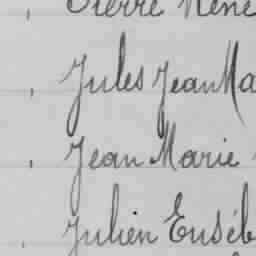 Pierre René
, Jules Jean Ma
, Jean Marie
, Julien Euséb